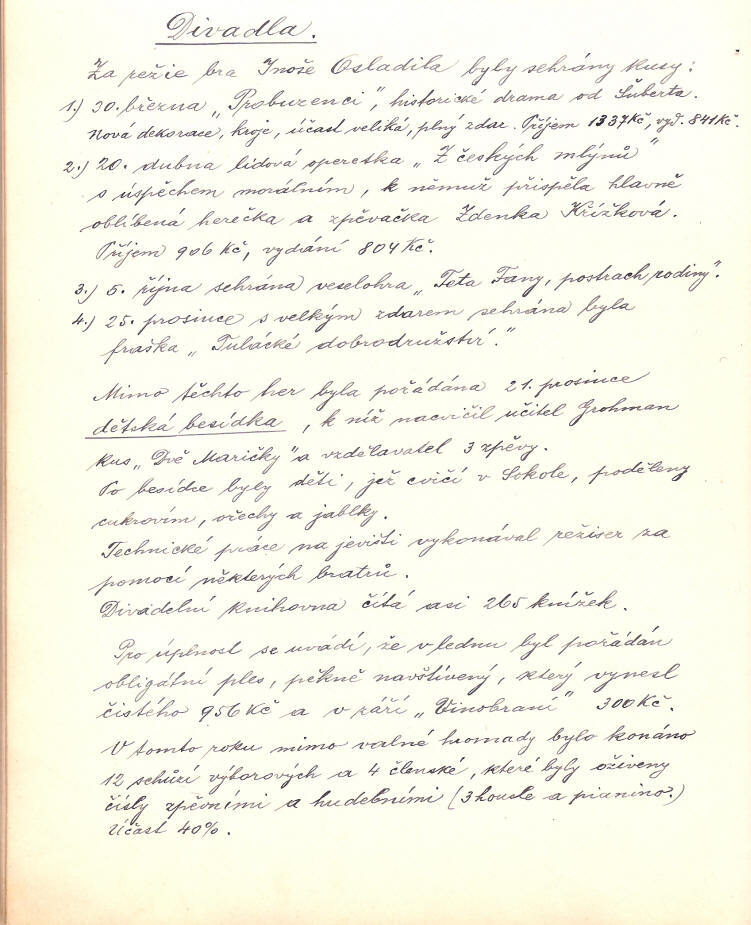 Divadla.
Za režie bra Inoše Osladila byly sehrány kusy:
1.) 30. března „Probuzenci", historické drama od Šuberta.
Nová dekorace, kroje, účast veliká, plný zdar. Příjem 1337 Kč, vyd. 841 Kč.
2.) 20. dubna lidová operetka „Z českých mlýnů"
s úspěchem morálním, k němuž přispěla hlavně
oblíbená herečka a zpěvačka Zdenka Křížková.
Příjem 906 Kč, vydání 804 Kč.
3.) 5. října sehrána veselohra „Teta Fany, postrach rodiny".
4.) 25. prosince s velkým zdarem sehrána byla
fraška „Tulácké dobrodružství."
Mimo těchto her byla pořádána 21. prosince
dětská besídka, k níž nacvičil učitel Grohman
kus „Dvě Maričky" a vzdělavatel 3 zpěvy.
Po besídce byly děti, jež cvičí v Sokole, poděleny
cukrovím, ořechy a jablky.
Technické práce na jevišti vykonával režiser za
pomocí některých bratrů.
Divadelní knihovna čítá asi 265 knížek.
Pro úplnost se uvádí, že v lednu byl pořádán
obligátní ples, pěkně navštívený, který vynesl
čistého 956 Kč a v září „Vinobraní" 300 Kč.
V tomto roku mimo valné hromady bylo konáno
12 schůzí výborových a 4 členské, které byly oživeny
čísly zpěvními a hudebními (3 housle a pianino.)
Účast 40%.